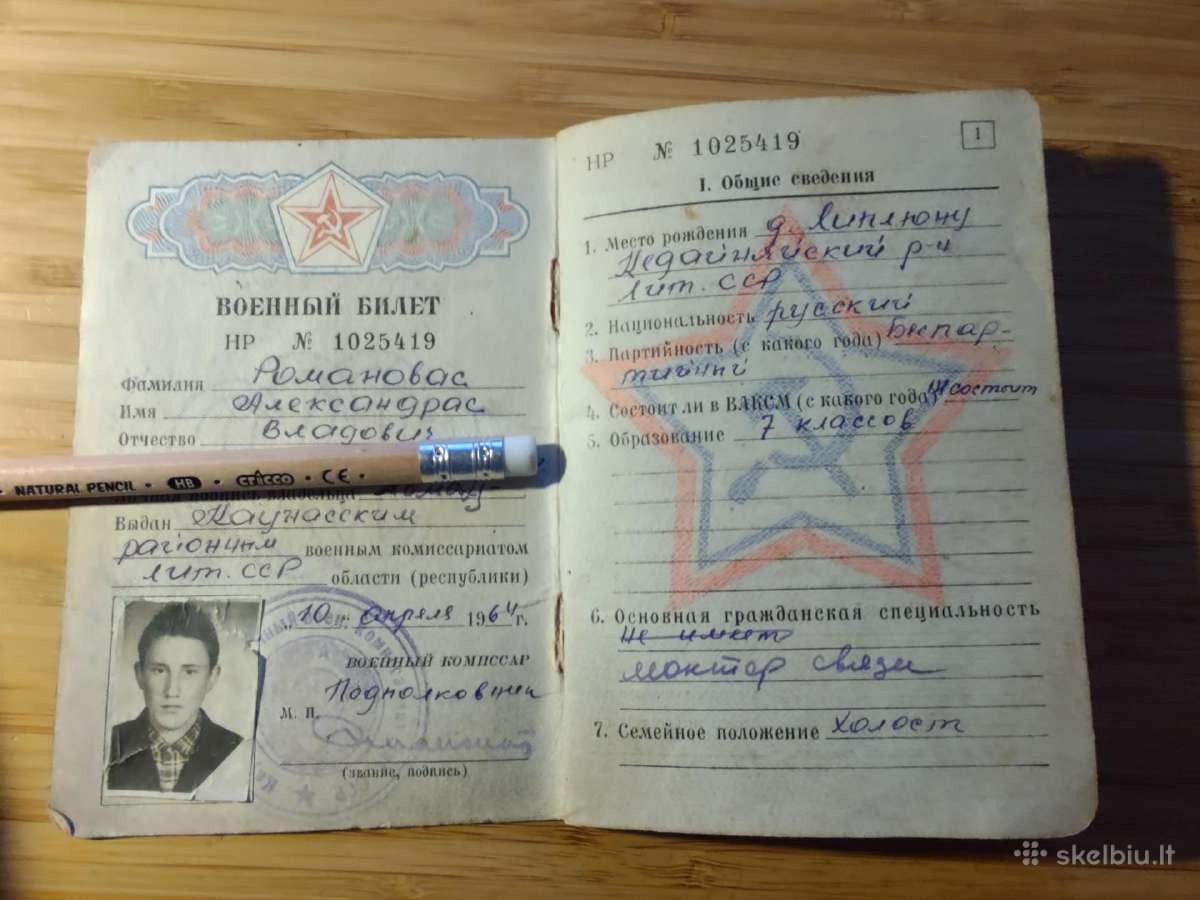 ВОЕННЫЙ БИЛЕТ
НР № 1025419
Фамилия Романовас
Имя Александрас
Отчество Владович
NATURAL PENCIL · HB · cricco · CE ·
владельца
Выдан Каунасским
районным военным комиссариатом
Лит. ССР области (республики)
10 апреля 1964 г.
ВОЕННЫЙ КОМИССАР
Подполковник
М. П.
(звание, подпись)
НР № 1025419
1
I. Общие сведения
1. Место рождения д. Липлюну
Кедайняйский р-н
Лит. ССР
2. Национальность русский
3. Партийность (с какого года) Беспар-
тийный
4. Состоит ли в ВЛКСМ (с какого года) Не состоит
5. Образование 7 классов
6. Основная гражданская специальность
Не имеет
монтер связи
7. Семейное положение Холост
skelbiu.lt